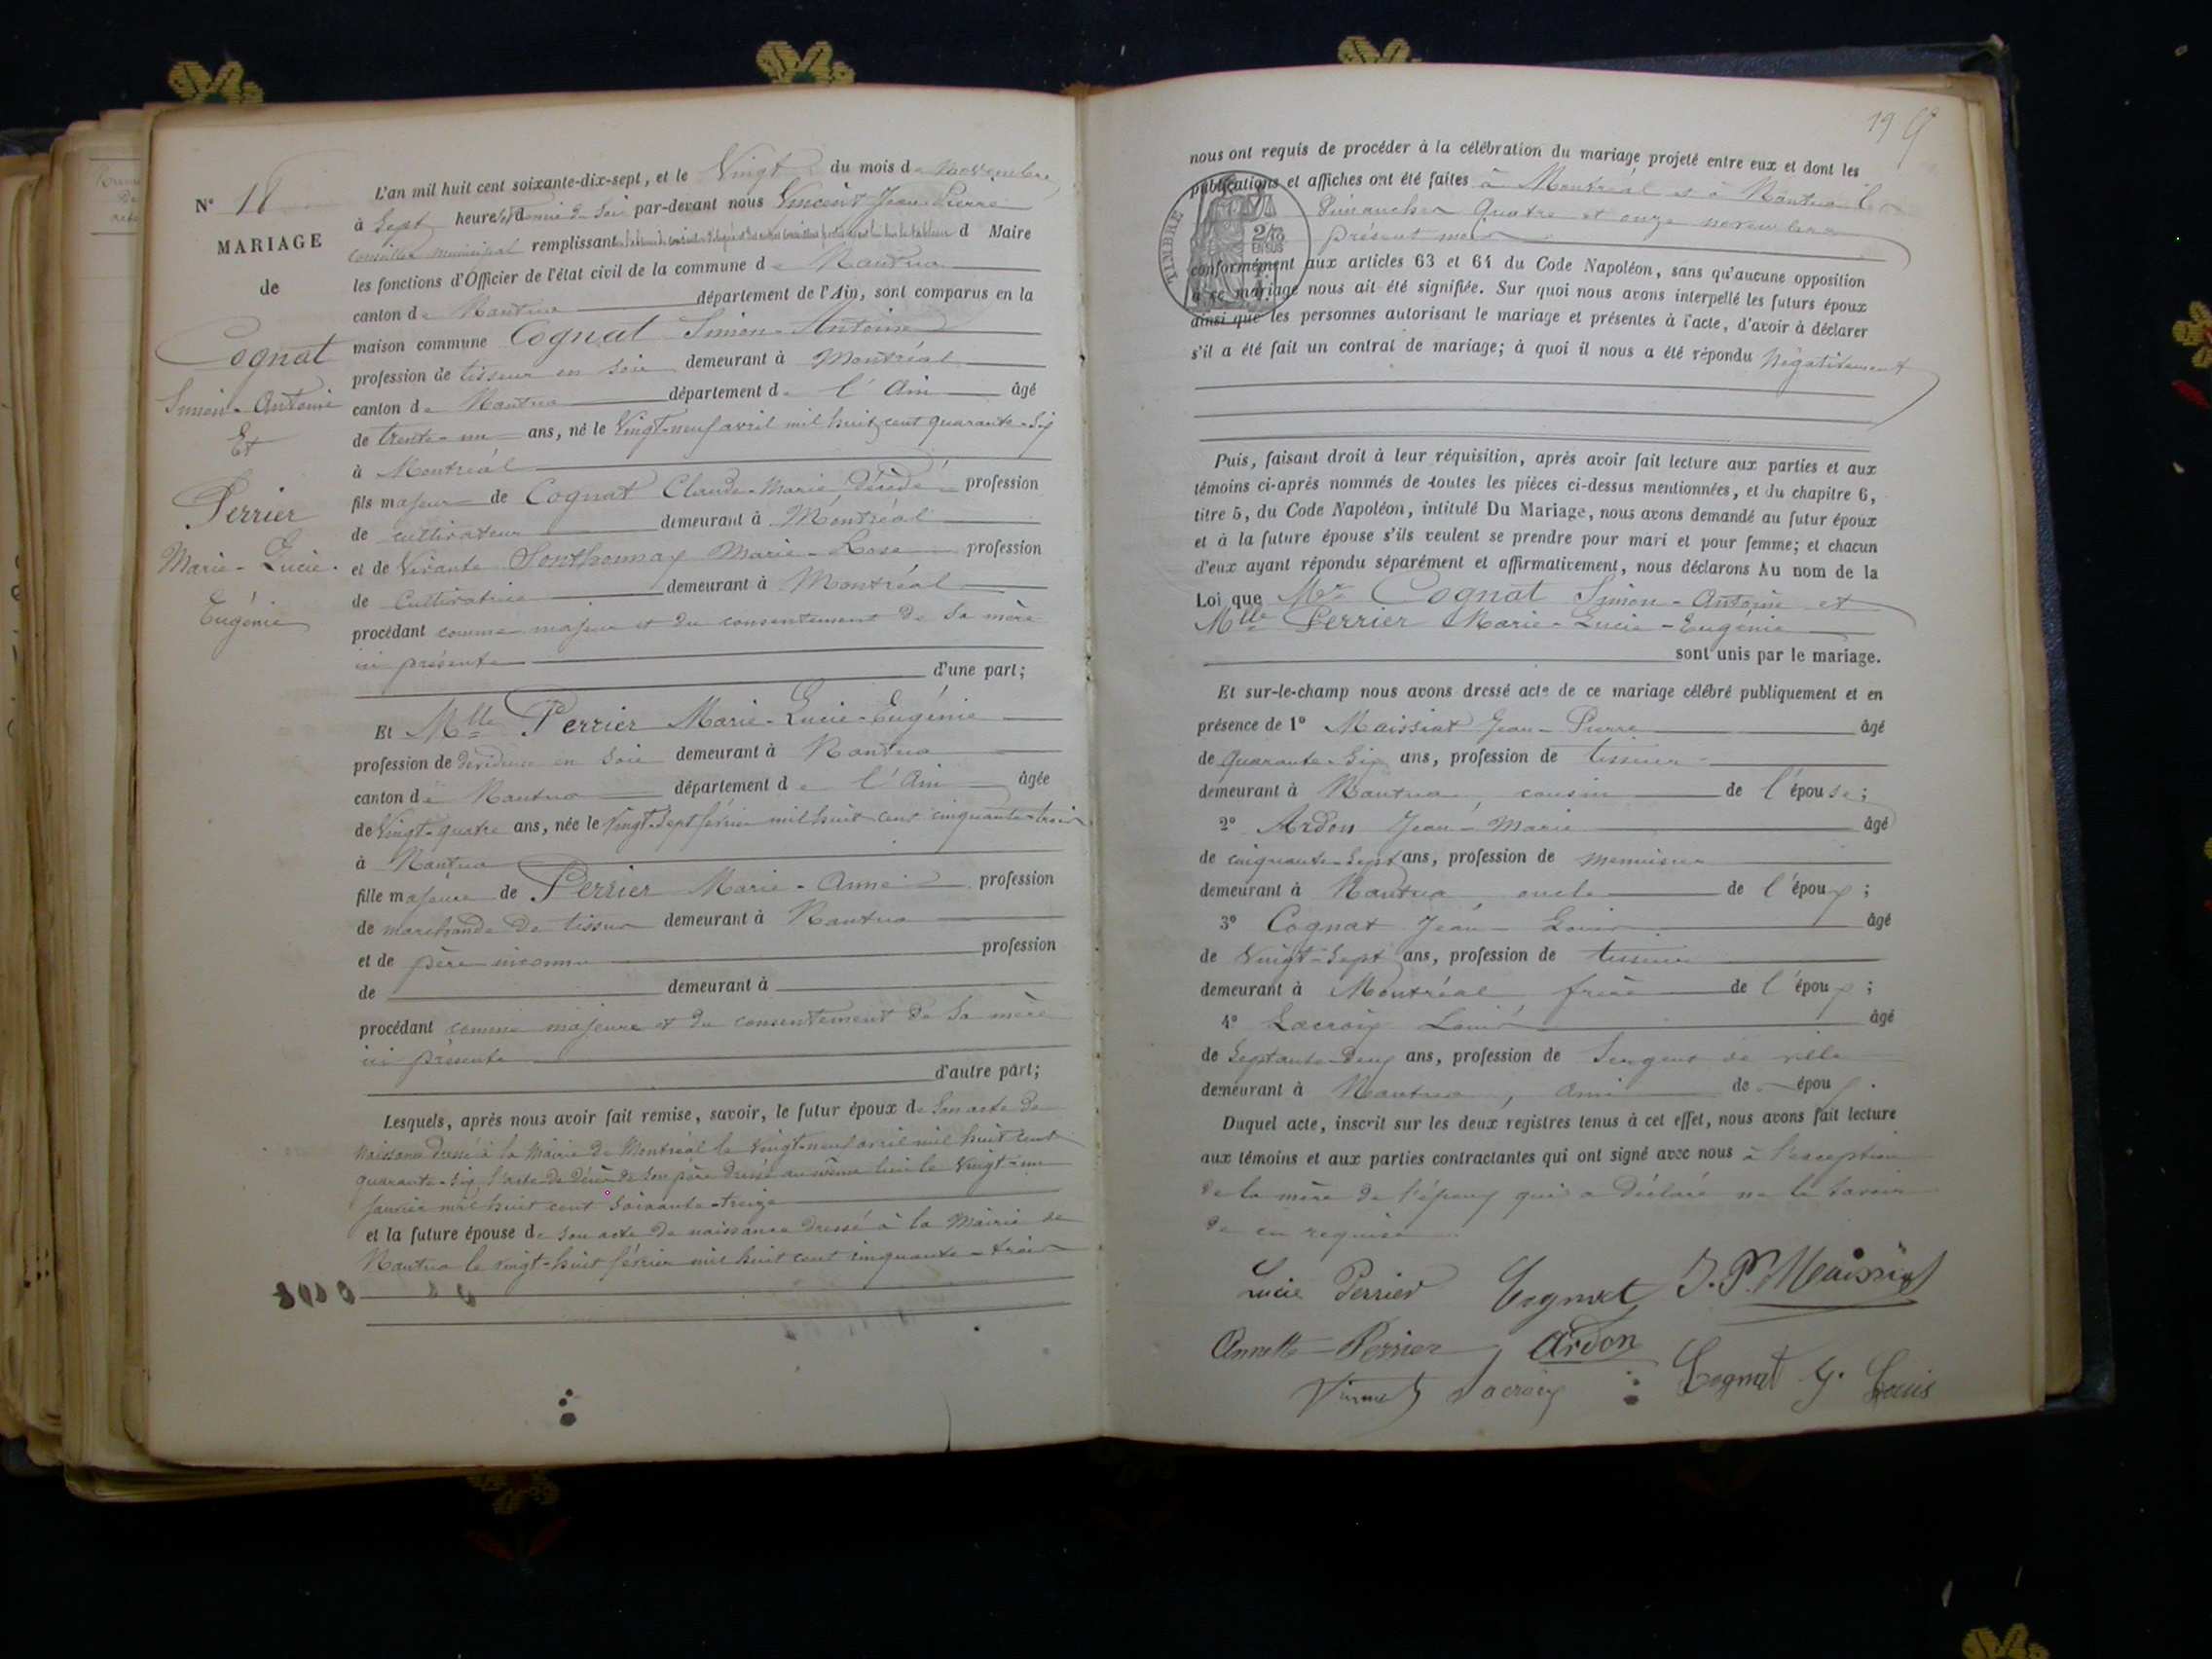 N° 18
MARIAGE
de
Cognat
Simon-Antoine
Et
Perrier
Marie-Lucie-
Eugénie
L'an mil huit cent soixante-dix-sept, et le Vingt du mois de Novembre
à Sept heures et demie du soir par-devant nous Vincent Jean-Pierre
Conseiller municipal remplissant d Maire
les fonctions d'Officier de l'état civil de la commune de Nantua
canton de Nantua département de l'Ain, sont comparus en la
maison commune Cognat Simon-Antoine
profession de tisseur en soie demeurant à Montréal
canton de Nantua département de l'Ain âgé
de trente-un ans, né le Vingt-neuf avril mil huit cent quarante-six
à Montréal
fils majeur de Cognat Claude-Marie, décédé profession
de cultivateur demeurant à Montréal
et de Vivante Sonthonnax Marie-Rose profession
de Cultivatrice demeurant à Montréal
procédant comme majeur et du consentement de sa mère
ici présente
d'une part;
Et Mlle Perrier Marie-Lucie-Eugénie
profession de dévideuse en soie demeurant à Nantua
canton de Nantua département de l'Ain âgée
de Vingt-quatre ans, née le Vingt-sept février mil huit cent cinquante-trois
à Nantua
fille majeure de Perrier Marie-Anne profession
de marchande de tissus demeurant à Nantua
et de père inconnu profession
de demeurant à
procédant comme majeure et du consentement de sa mère
ici présente
d'autre part;
Lesquels, après nous avoir fait remise, savoir, le futur époux de son acte de
naissance dressé à la Mairie de Montréal le vingt-neuf avril mil huit cent
quarante-six, l'acte de décès de son père dressé au même lieu le vingt-un
janvier mil huit cent soixante-treize
et la future épouse de son acte de naissance dressé à la Mairie de
Nantua le vingt-huit février mil huit cent cinquante-trois
19
nous ont requis de procéder à la célébration du mariage projeté entre eux et dont les
publications et affiches ont été faites à Montréal et à Nantua les
Dimanches Quatre et onze novembre
présent mois
TIMBRE
EN SUS
conformément aux articles 63 et 64 du Code Napoléon, sans qu'aucune opposition
à ce mariage nous ait été signifiée. Sur quoi nous avons interpellé les futurs époux
ainsi que les personnes autorisant le mariage et présentes à l'acte, d'avoir à déclarer
s'il a été fait un contrat de mariage; à quoi il nous a été répondu Négativement
Puis, faisant droit à leur réquisition, après avoir fait lecture aux parties et aux
témoins ci-après nommés de toutes les pièces ci-dessus mentionnées, et du chapitre 6,
titre 5, du Code Napoléon, intitulé Du Mariage, nous avons demandé au futur époux
et à la future épouse s'ils veulent se prendre pour mari et pour femme; et chacun
d'eux ayant répondu séparément et affirmativement, nous déclarons Au nom de la
Loi que Mr Cognat Simon-Antoine et
Mlle Perrier Marie-Lucie-Eugénie
sont unis par le mariage.
Et sur-le-champ nous avons dressé acte de ce mariage célébré publiquement et en
présence de 1° Maissiat Jean-Pierre âgé
de Quarante-six ans, profession de tisseur
demeurant à Nantua, cousin de l'épouse;
2° Ardon Jean-Marie âgé
de cinquante-sept ans, profession de menuisier
demeurant à Nantua, oncle de l'époux;
3° Cognat Jean-Louis âgé
de Vingt-sept ans, profession de tisseur
demeurant à Montréal frère de l'époux;
4° Lacroix Louis âgé
de Septante-deux ans, profession de Sergent de ville
demeurant à Nantua, ami de épou.
Duquel acte, inscrit sur les deux registres tenus à cet effet, nous avons fait lecture
aux témoins et aux parties contractantes qui ont signé avec nous à l'exception
de la mère de l'époux qui a déclaré ne le savoir
de ce requise
Lucie Perrier Cognat J. P. Maissiat
Annette Perrier Ardon
Vincent Lacroix Cognat J. Louis